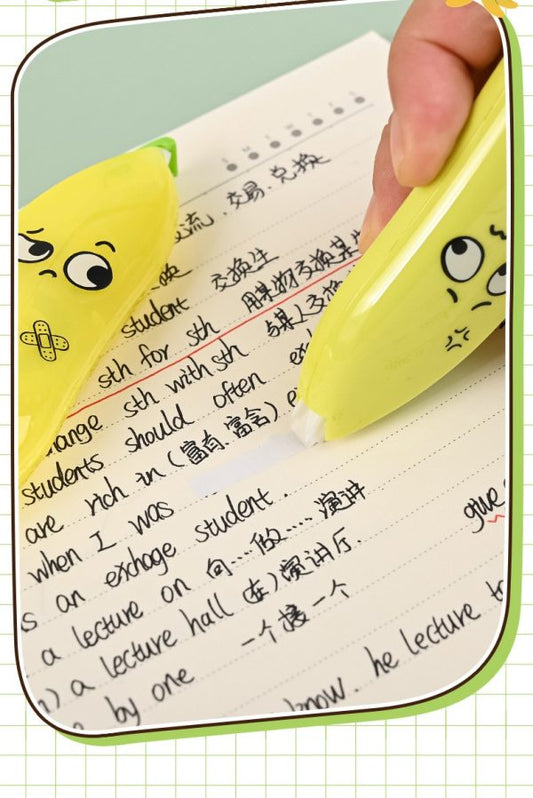 S M T W T F S
流．交易．兑换
换 交换生
student 用某物交换某
sth for sth 与某人交换
ange sth with sth
students should often
are rich in (富有.富含)
when I was
s an exchage student.
a lecture on 向…做…. 演讲
) a lecture hall 在) 演讲厅. give
by one 一个接一个
know. he lecture to